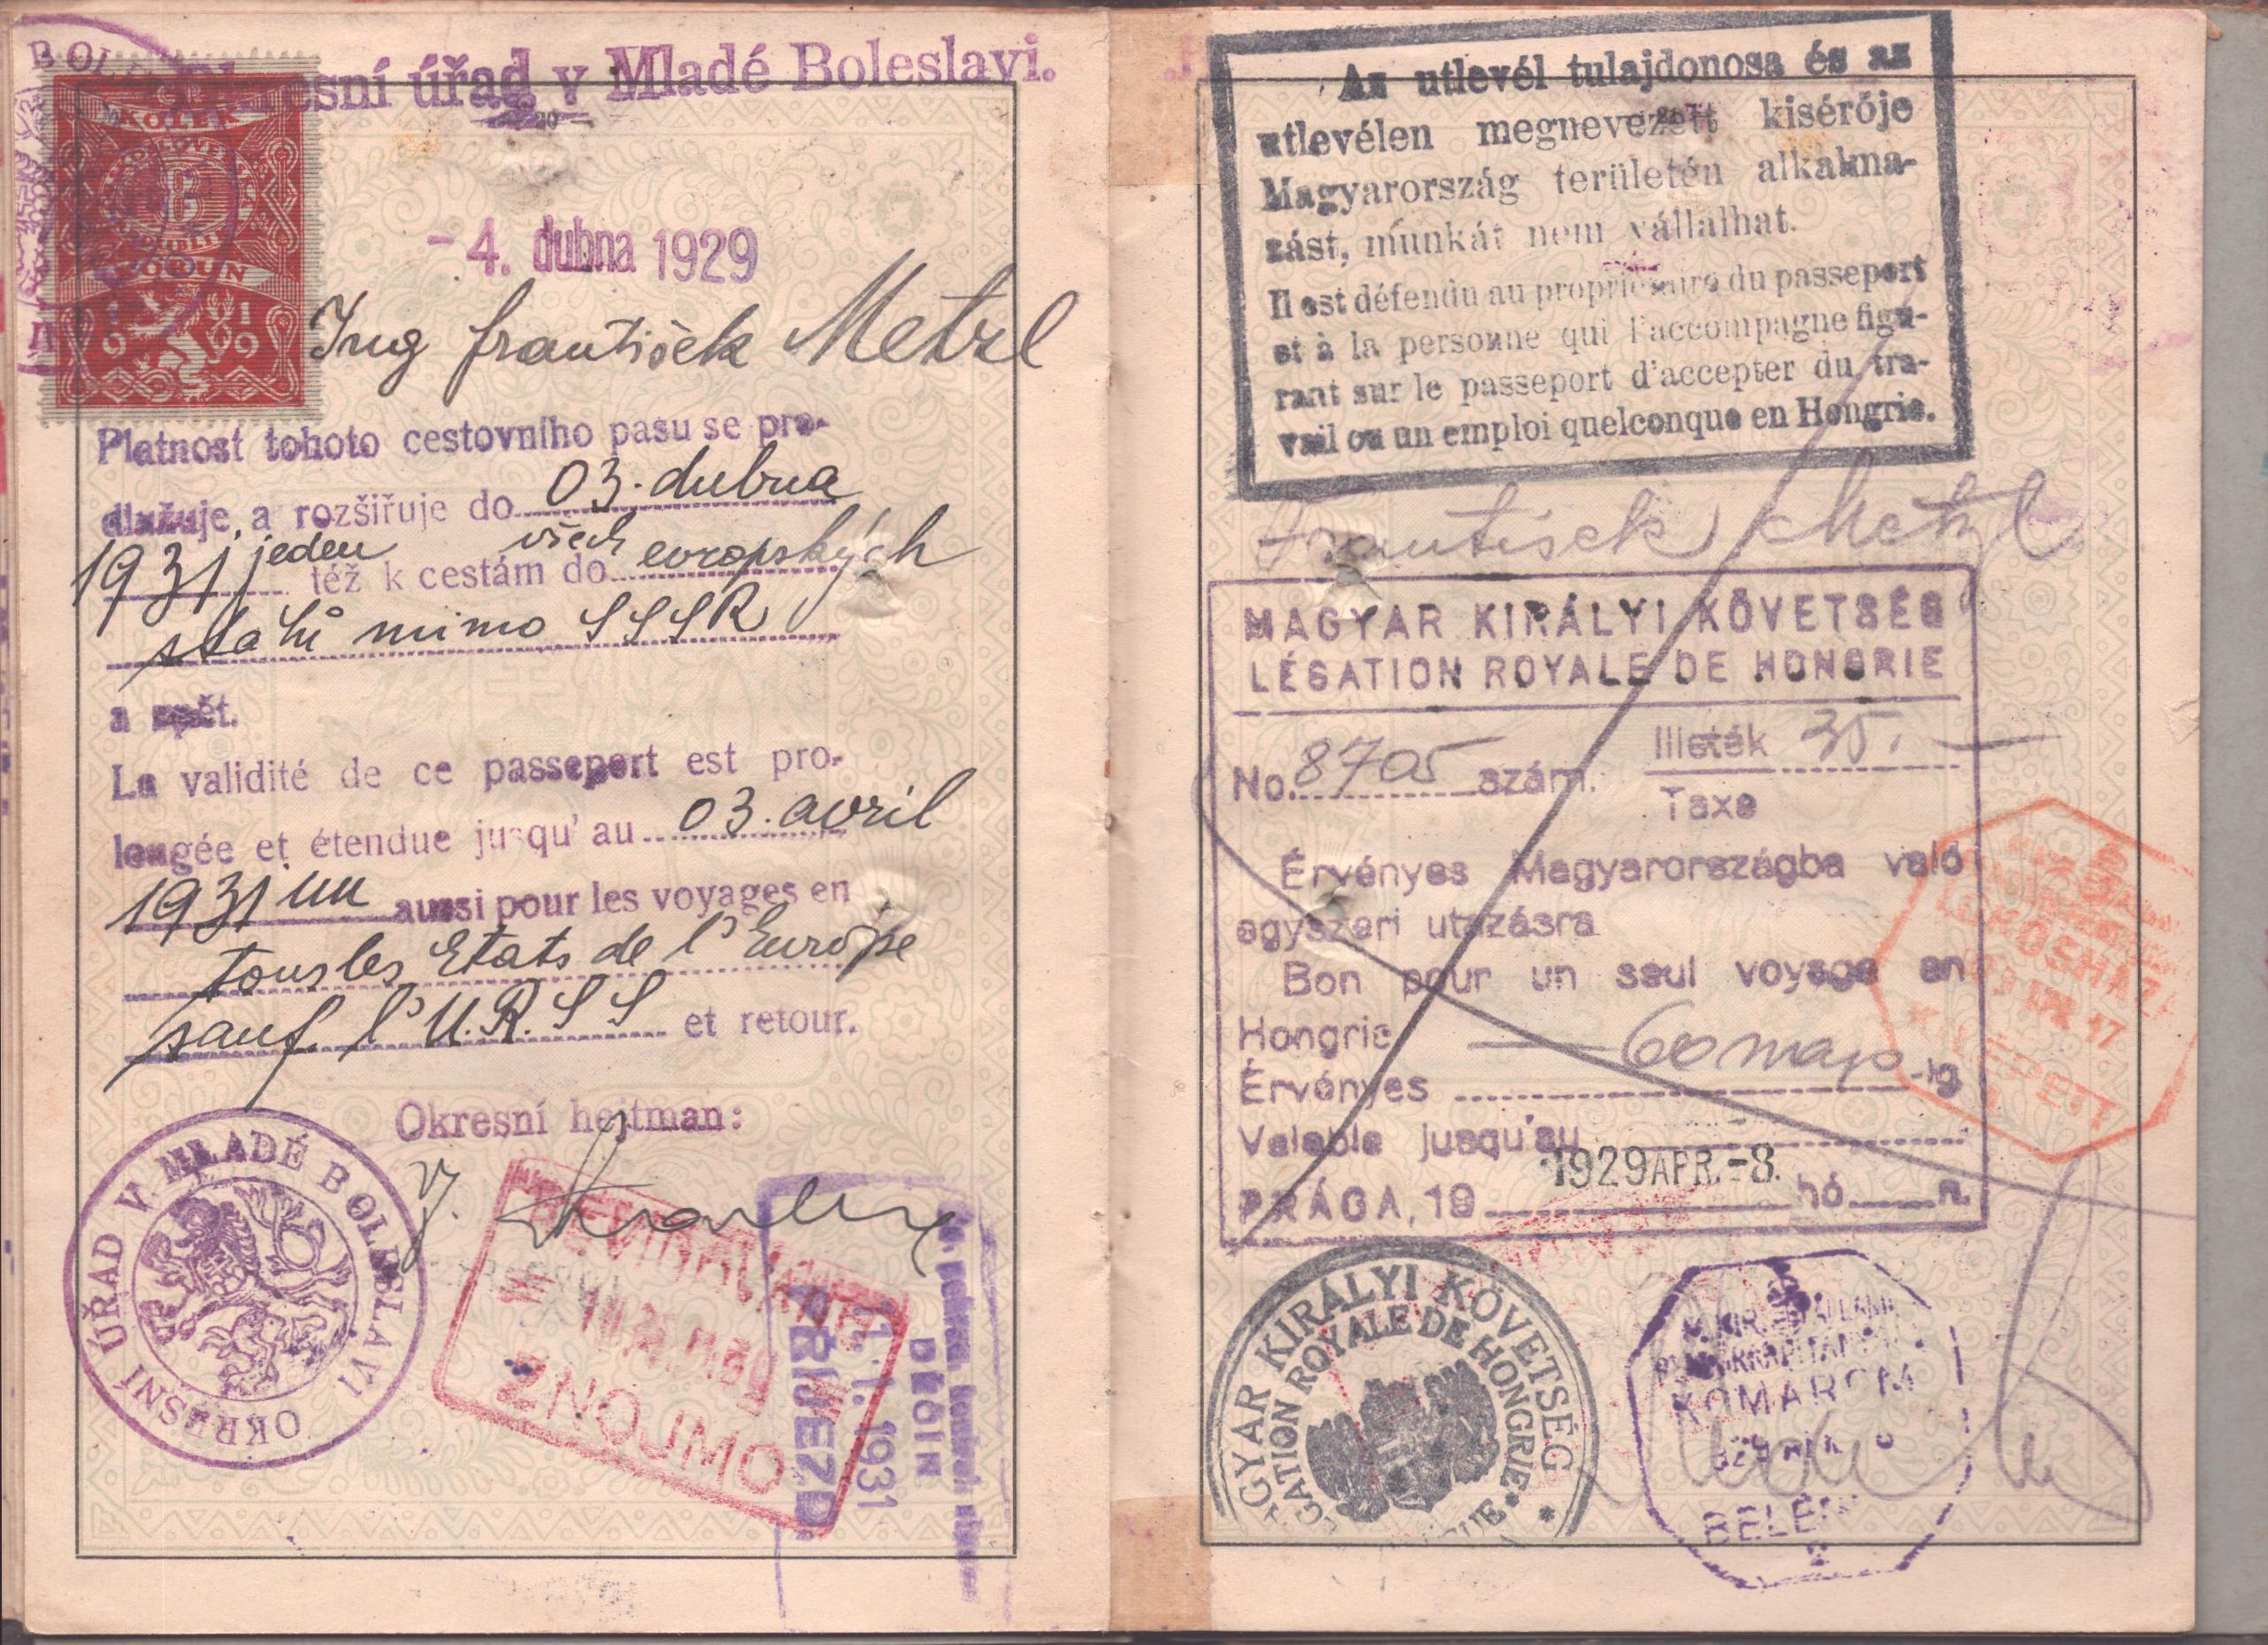 Okresní úřad v Mladé Boleslavi.
— 20 —
KOLEK
8
KORUN
1919
- 4. dubna 1929
Ing František Metzl
Platnost tohoto cestovního pasu se pro-
dlužuje a rozšiřuje do 03. dubna
1931 jeden též k cestám do všech evropských
států mimo SSSR
a zpět.
La validité de ce passeport est pro-
longée et étendue jusqu' au 03. avril
1931 un aussi pour les voyages en
tous les Etats de l'Europe
sauf. l'U.R.S.S et retour.
Okresní hejtman:
OKRESNÍ ÚŘAD V MLADÉ BOLESLAVI
REVIDOVÁNO
ZNOJMO
DĚČÍN
1. 1931
PŘÍJEZD.
Az utlevél tulajdonosa és az
utlevélen megnevezett kisérője
Magyarország területén alkalma-
zást, munkát nem vállalhat.
Il est défendu au propriétaire du passeport
et à la personne qui l'accompagne figu-
rant sur le passeport d'accepter du tra-
vail ou un emploi quelconque en Hongrie.
František Metzl
MAGYAR KIRÁLYI KÖVETSÉG
LÉGATION ROYALE DE HONGRIE
No. 8705 szám. Illeték 35.—
Taxe
Érvényes Magyarországba való
egyszeri utazásra
Bon pour un seul voyage en
Hongrie
Érvényes 60 nap -ig
Valable jusqu'au
PRÁGA, 19 1929 APR. -8. hó n.
OROSHÁZA
APR. 17
KILÉPETT
MAGYAR KIRÁLYI KÖVETSÉG
LÉGATION ROYALE DE HONGRIE
KOMÁROM
BELÉP